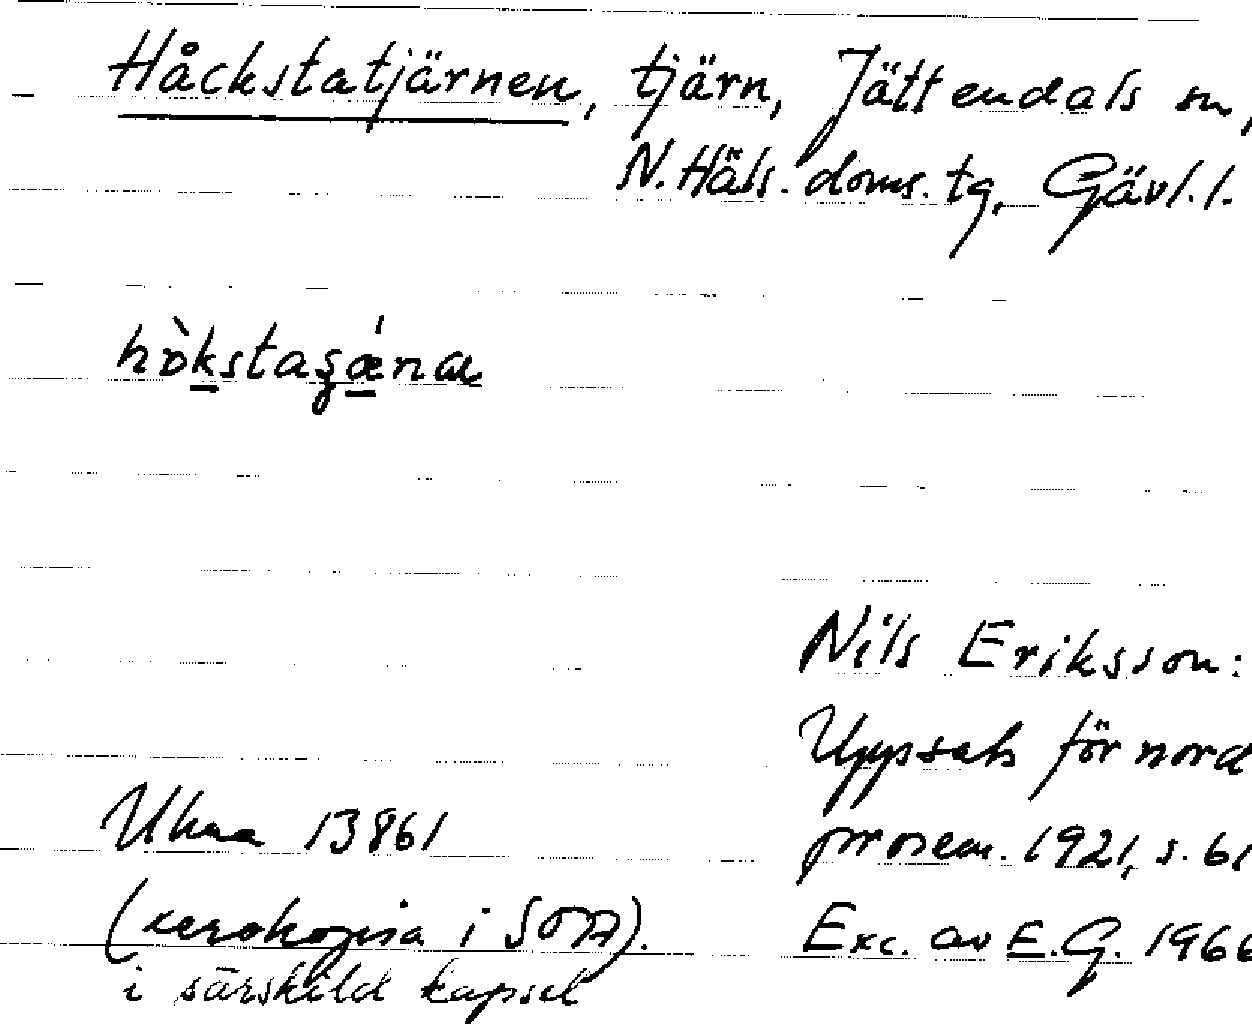 Håckstatjärnen, tjärn, Jättendals sn,
N. Häls. doms. tg, Gävl. l.
hòkstaʂǽnɑ
Nils Eriksson:
Uppsats för nord
Ukaa 13861
prosem. 1921, s. 61
(xerokopia i SOA).
Exc. av E.G. 1966
i särskild kapsel